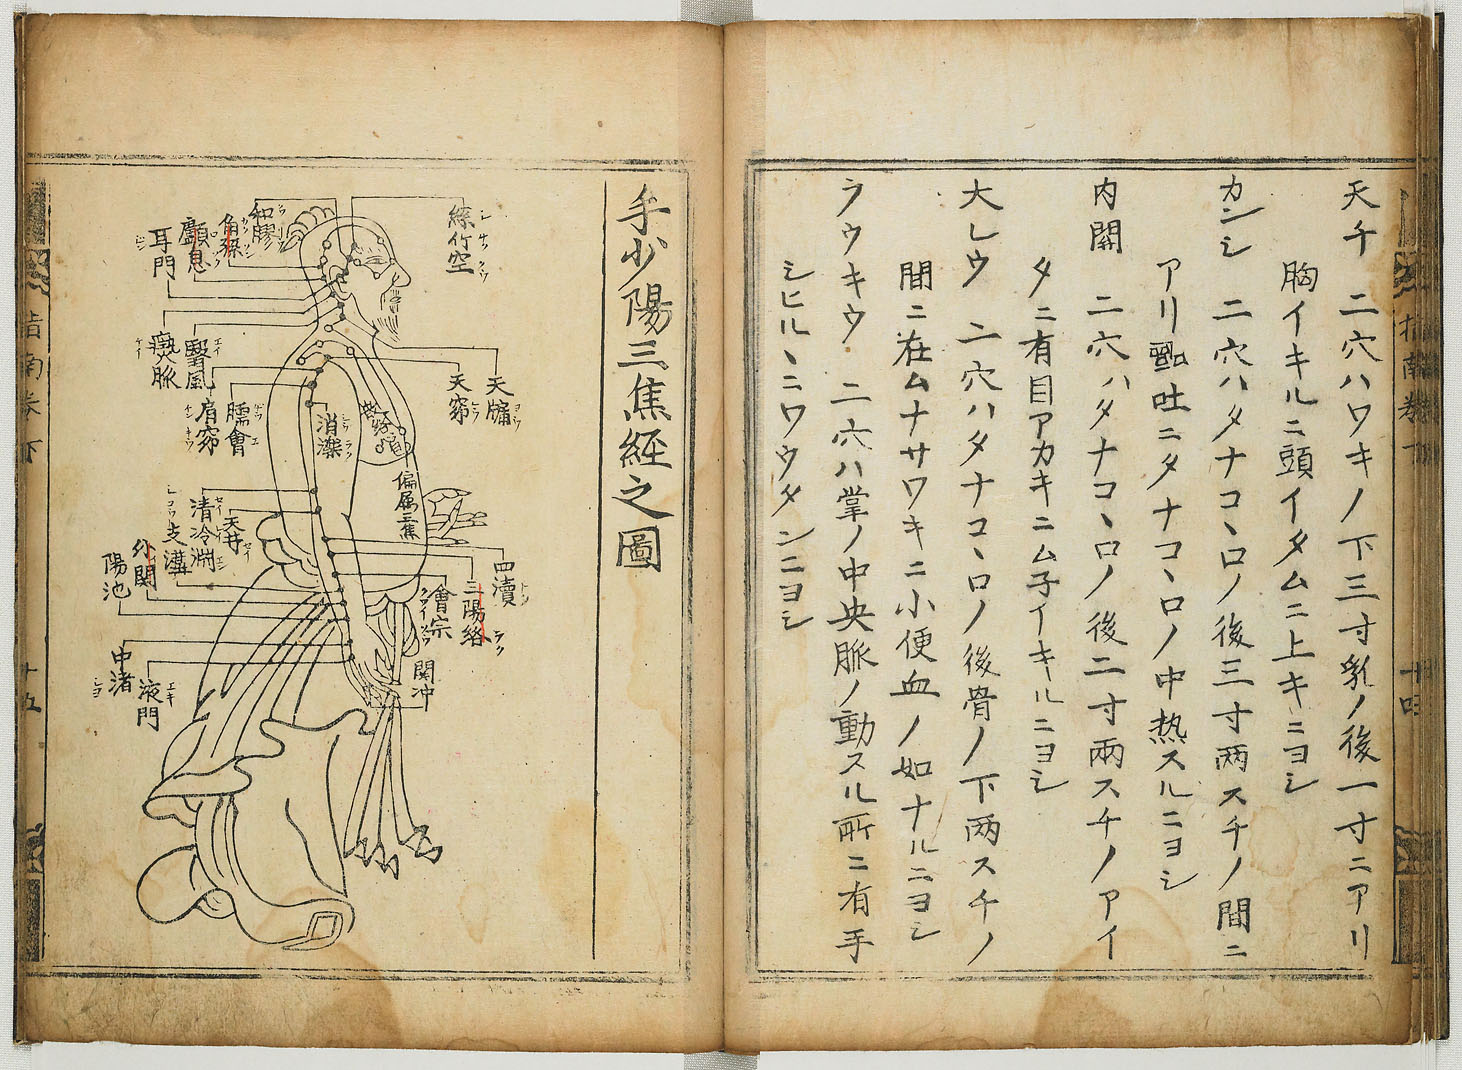 天チ 二穴ハワキノ下三寸乳ノ後一寸ニアリ
胸イキルニ頭イタムニ上キニヨシ
カンシ 二穴ハタナコヽロノ後三寸両スチノ間ニ
アリ 吐ニタナコヽロノ中熱スルニヨシ
内関 二穴ハタナコヽロノ後二寸両スチノアイ
タニ有目アカキニム子イキルニヨシ
大レウ 二穴ハタナコヽロノ後骨ノ下両スチノ
間ニ在ムナサワキニ小便血ノ如ナルニヨシ
ラウキウ 二穴ハ掌ノ中央脈ノ動スル所ニ有手
シヒルヽニワウタンニヨシ
指南巻下
十四
手少陽三焦経之圖
絲竹空
和髎
角孫
顱息
耳門
翳風
瘈脈
天牖
天窌
臑會
肩窌
消濼
偏属三焦
清冷淵
天井
四瀆
支溝
三陽絡
會宗
外関
陽池
関冲
中渚
液門
指南巻下
十五